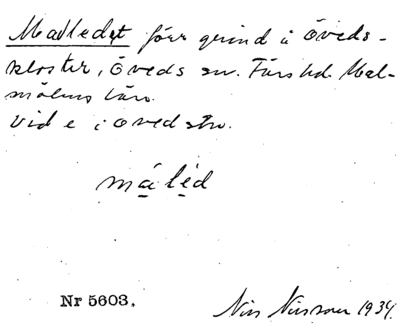 Madledet förr grind i Öveds-
kloster, Öveds sn. Färs hd. Mal-
möhus län.
Vid e i Öved str.
måled
Nr 5603.
Nils Nilsson 1934.